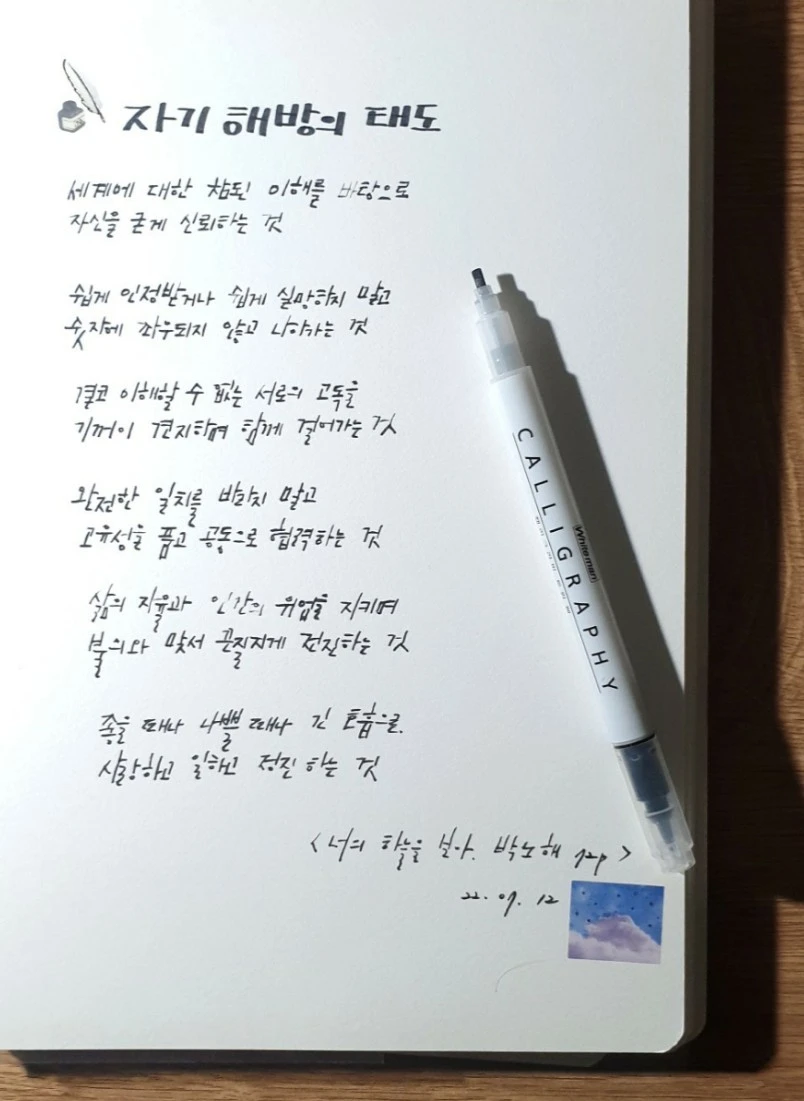 자기 해방의 태도
세계에 대한 참된 이해를 바탕으로
자신을 굳게 신뢰하는 것
쉽게 인정받거나 쉽게 실망하지 말고
숫자에 좌우되지 않고 나아가는 것
결코 이해할 수 없는 서로의 고독을
기꺼이 견지하며 함께 걸어가는 것
완전한 일치를 바라지 말고
고유성을 품고 공동으로 협력하는 것
삶의 자율과 인간의 위엄을 지키며
불의와 맞서 끈질기게 전진하는 것
좋을 때나 나쁠 때나 긴 호흡으로.
사랑하고 일하고 정진 하는 것
<너의 하늘을 보아. 박노해 92p>
22. 07. 12
Whiteman
CALLIGRAPHY